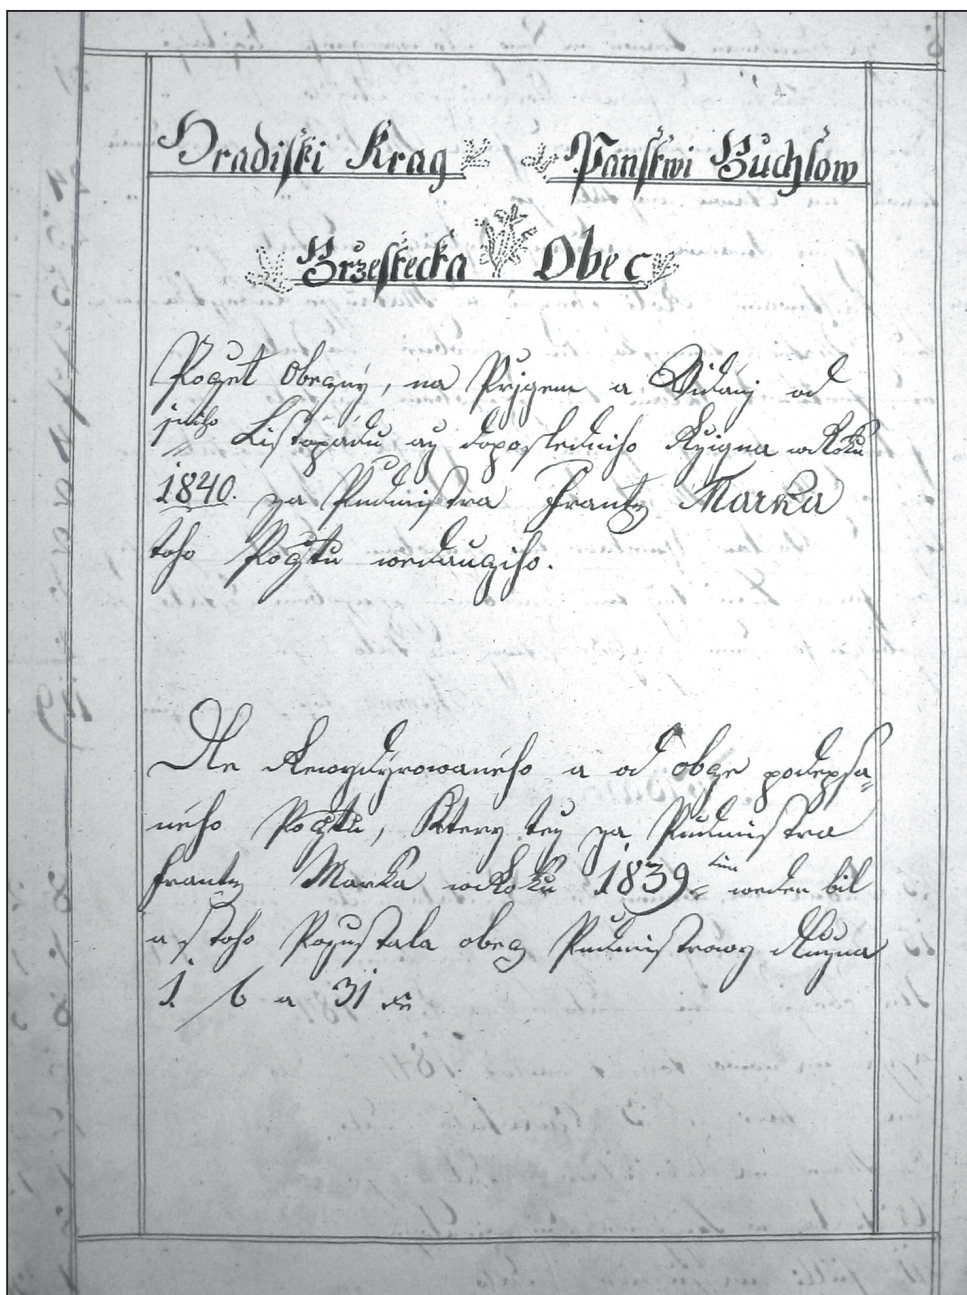 Hradiſki Krag Panſtwi Buchlow
Brzeſtecka Obec
Poczet Obeczný, na Prígem a Widáni od
Listopadu až do poſledniho Ržigna w Roku
1840. za Pudmiſtra Frantz Marka
toho Pocztu wedauziho.
Dle Rewydyrowaného a od obcze podepſa=
ného Pocztu, Ktery tez za Pudmiſtra
Frantz Marka w Roku 1839 weden bil
a s toho Pozustala obecz Pudmistrowy
1 f 6 a 31